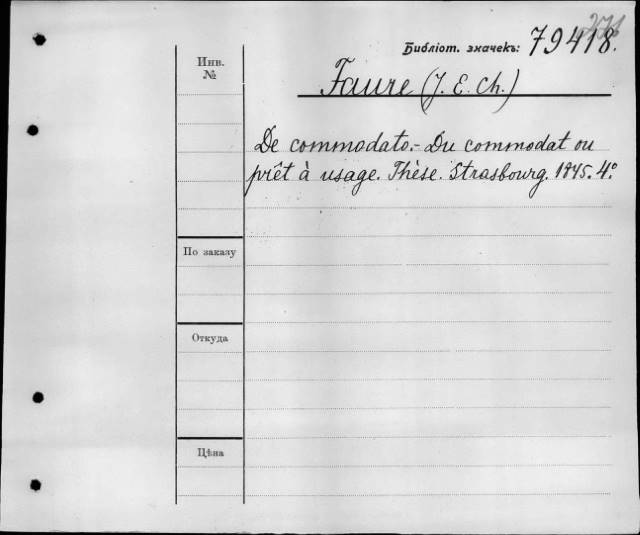 Библіот. значекъ: 79418.
Инв.
№
Faure (J. E. Ch.)
De commodato. - Du commodat ou
prêt à usage. Thèse. Strasbourg. 1845. 4º
По заказу
Откуда
Цѣна